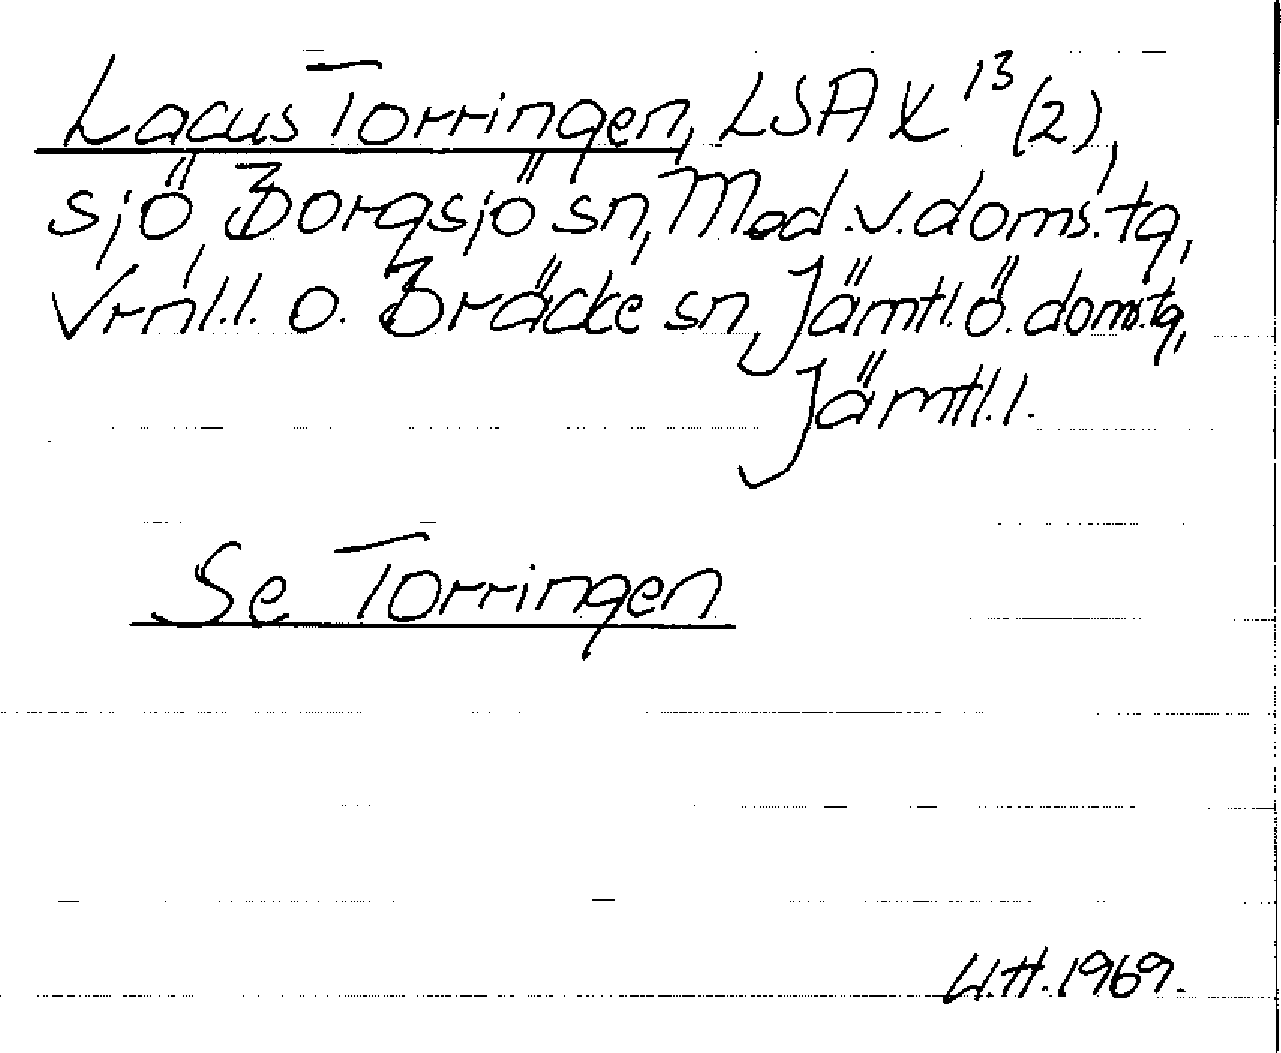 Lacus Torringen, LSA X¹³ (2),
sjö, Borgsjö sn, Med.v.doms.tg,
Vrnl.l. o. Bräcke sn, Jämtl.ö.doms.tg,
Jämtl.l.
Se Torringen
U.H.1969.